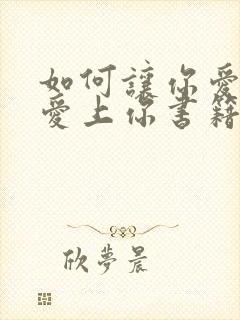 如何讓你愛
愛上你書籍
欣夢晨